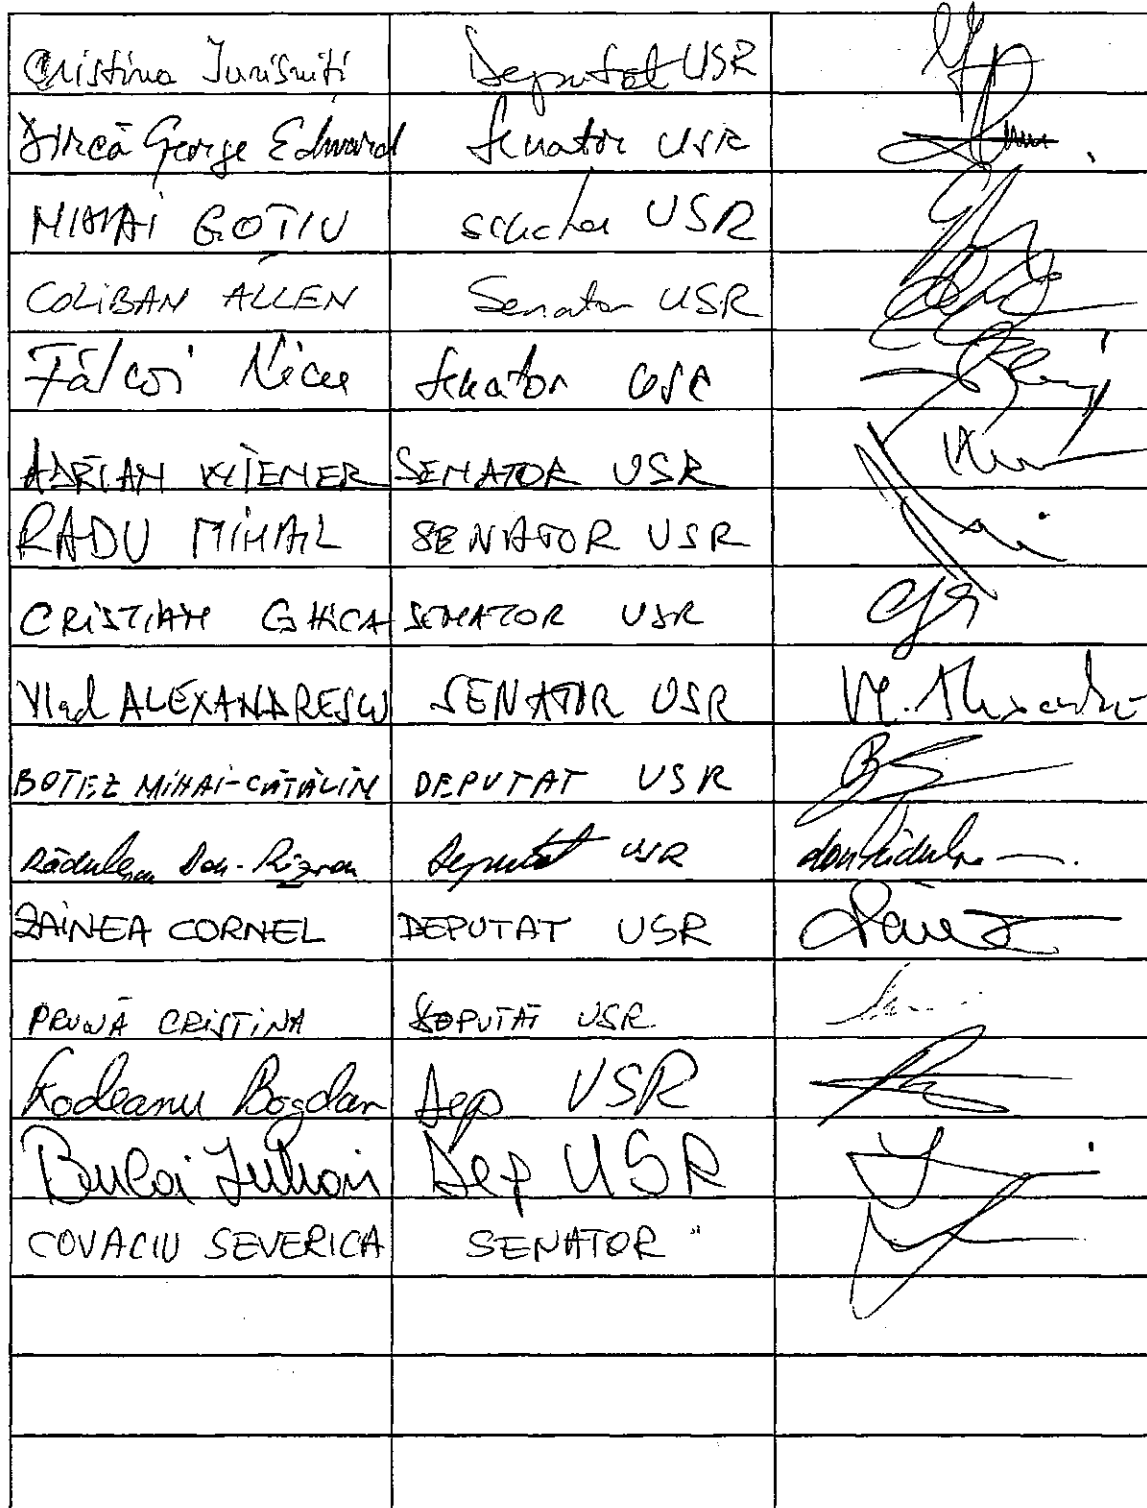 Cristina Iurisniti Deputat USR
Dircă George Edward Senator USR
MIHAI GOȚIU senator USR
COLIBAN ALLEN Senator USR
Fălcoi Nicu Senator USR
ADRIAN WIENER SENATOR USR
RADU MIHAIL SENATOR USR
CRISTIAN GHICA SENATOR USR
Vlad ALEXANDRESCU SENATOR USR Vl. Alexandre
BOTEZ MIHAI-CĂTĂLIN DEPUTAT USR
Rădulescu Dan-Răzvan Deputat USR
ZAINEA CORNEL DEPUTAT USR
PRUNĂ CRISTINA DEPUTAT USR
Rodeanu Bogdan Dep USR
Bulai Iulian Dep USR
COVACIU SEVERICA SENATOR "